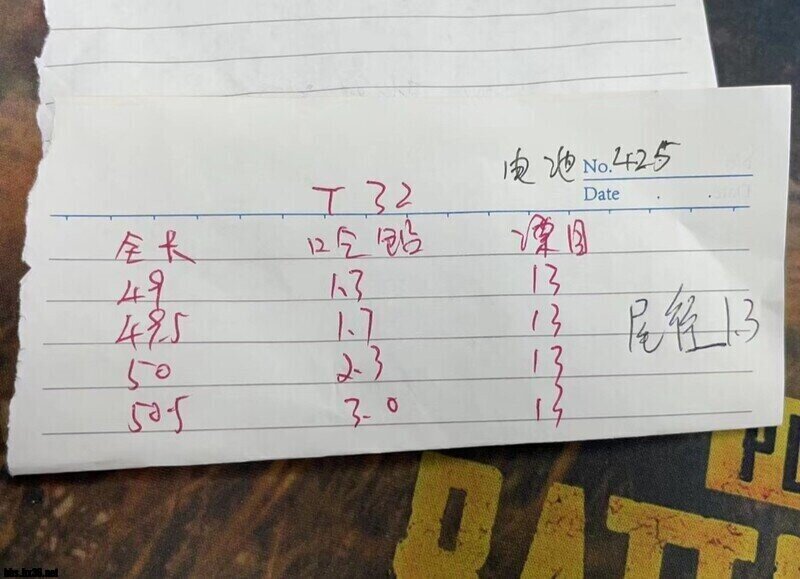 电池 No. 425
Date . .
T 32
全长 吃铅 漂目
49 1.3 13
49.5 1.7 13
50 2.3 13
50.5 3.0 13
尾径 1.3
BATT